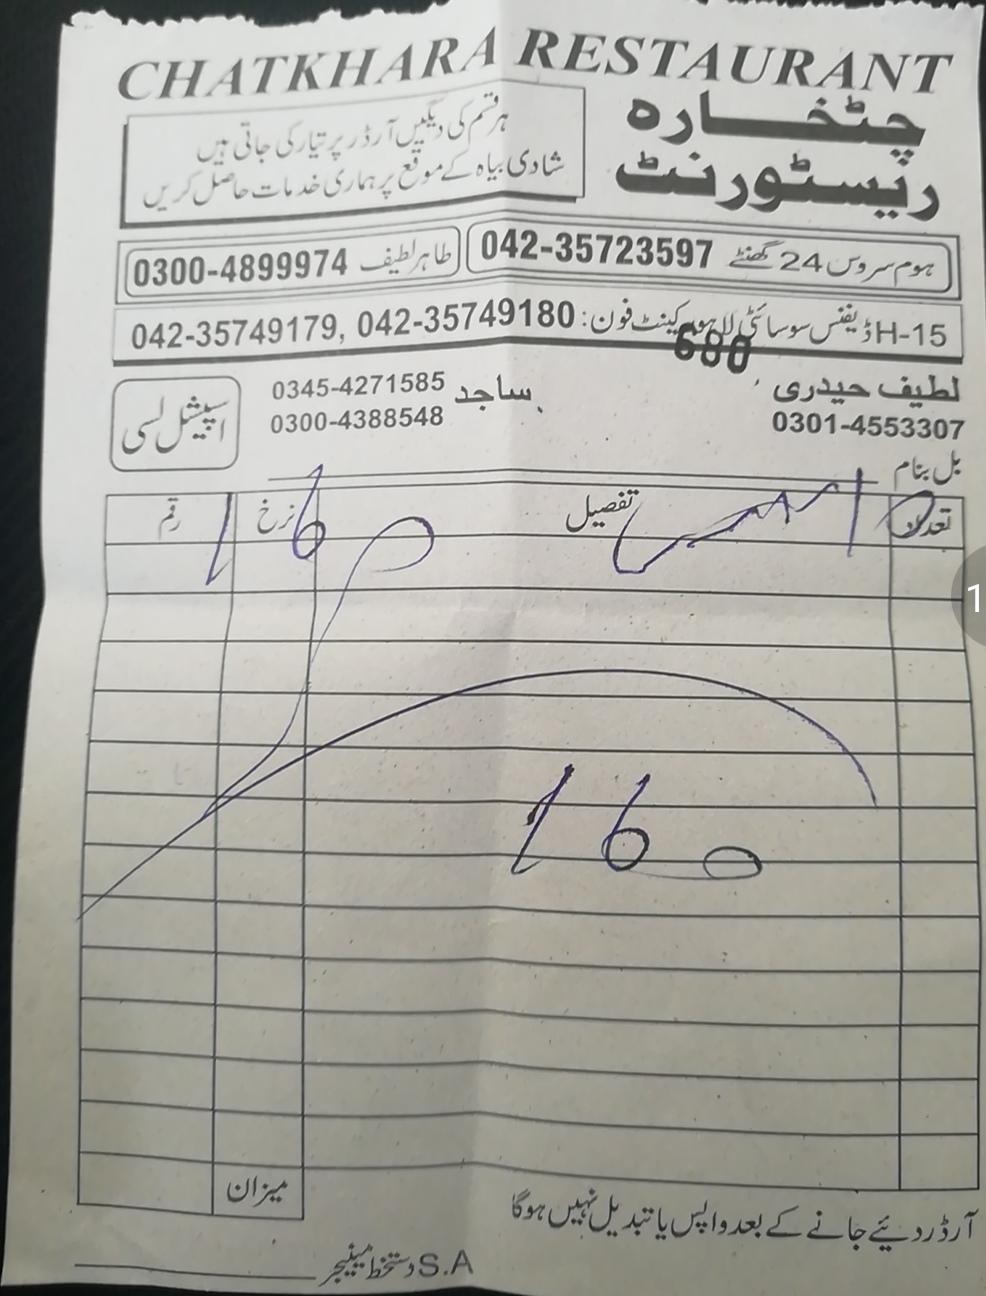 CHATKHARA RESTAURANT
چٹخارہ
ریسٹورنٹ
ہر قسم کی دیگیں آرڈر پر تیار کی جاتی ہیں
شادی بیاہ کے موقع پر ہماری خدمات حاصل کریں
ہوم سروس 24 گھنٹے 042-35723597
طاہر لطیف 0300-4899974
H-15 ڈیفنس سوسائٹی لاہور کینٹ فون: 042-35749180, 042-35749179
680
لطیف حیدری
0301-4553307
ساجد 0345-4271585
0300-4388548
اسپیشل لسی
بل بنام
تعداد تفصیل نرخ رقم
160
160
میزان
آرڈر دیئے جانے کے بعد واپس یا تبدیل نہیں ہوگا
S.A دستخط مینیجر
1